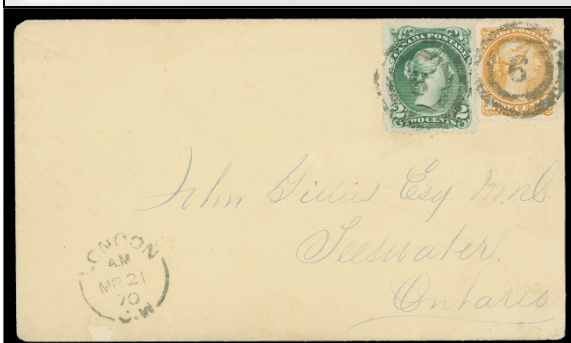 CANADA POSTAGE
2 2
TWO CENTS
6
John Gillies Esq
Teeswater.
Ontario
LONDON
AM
MR 21
70
C.W